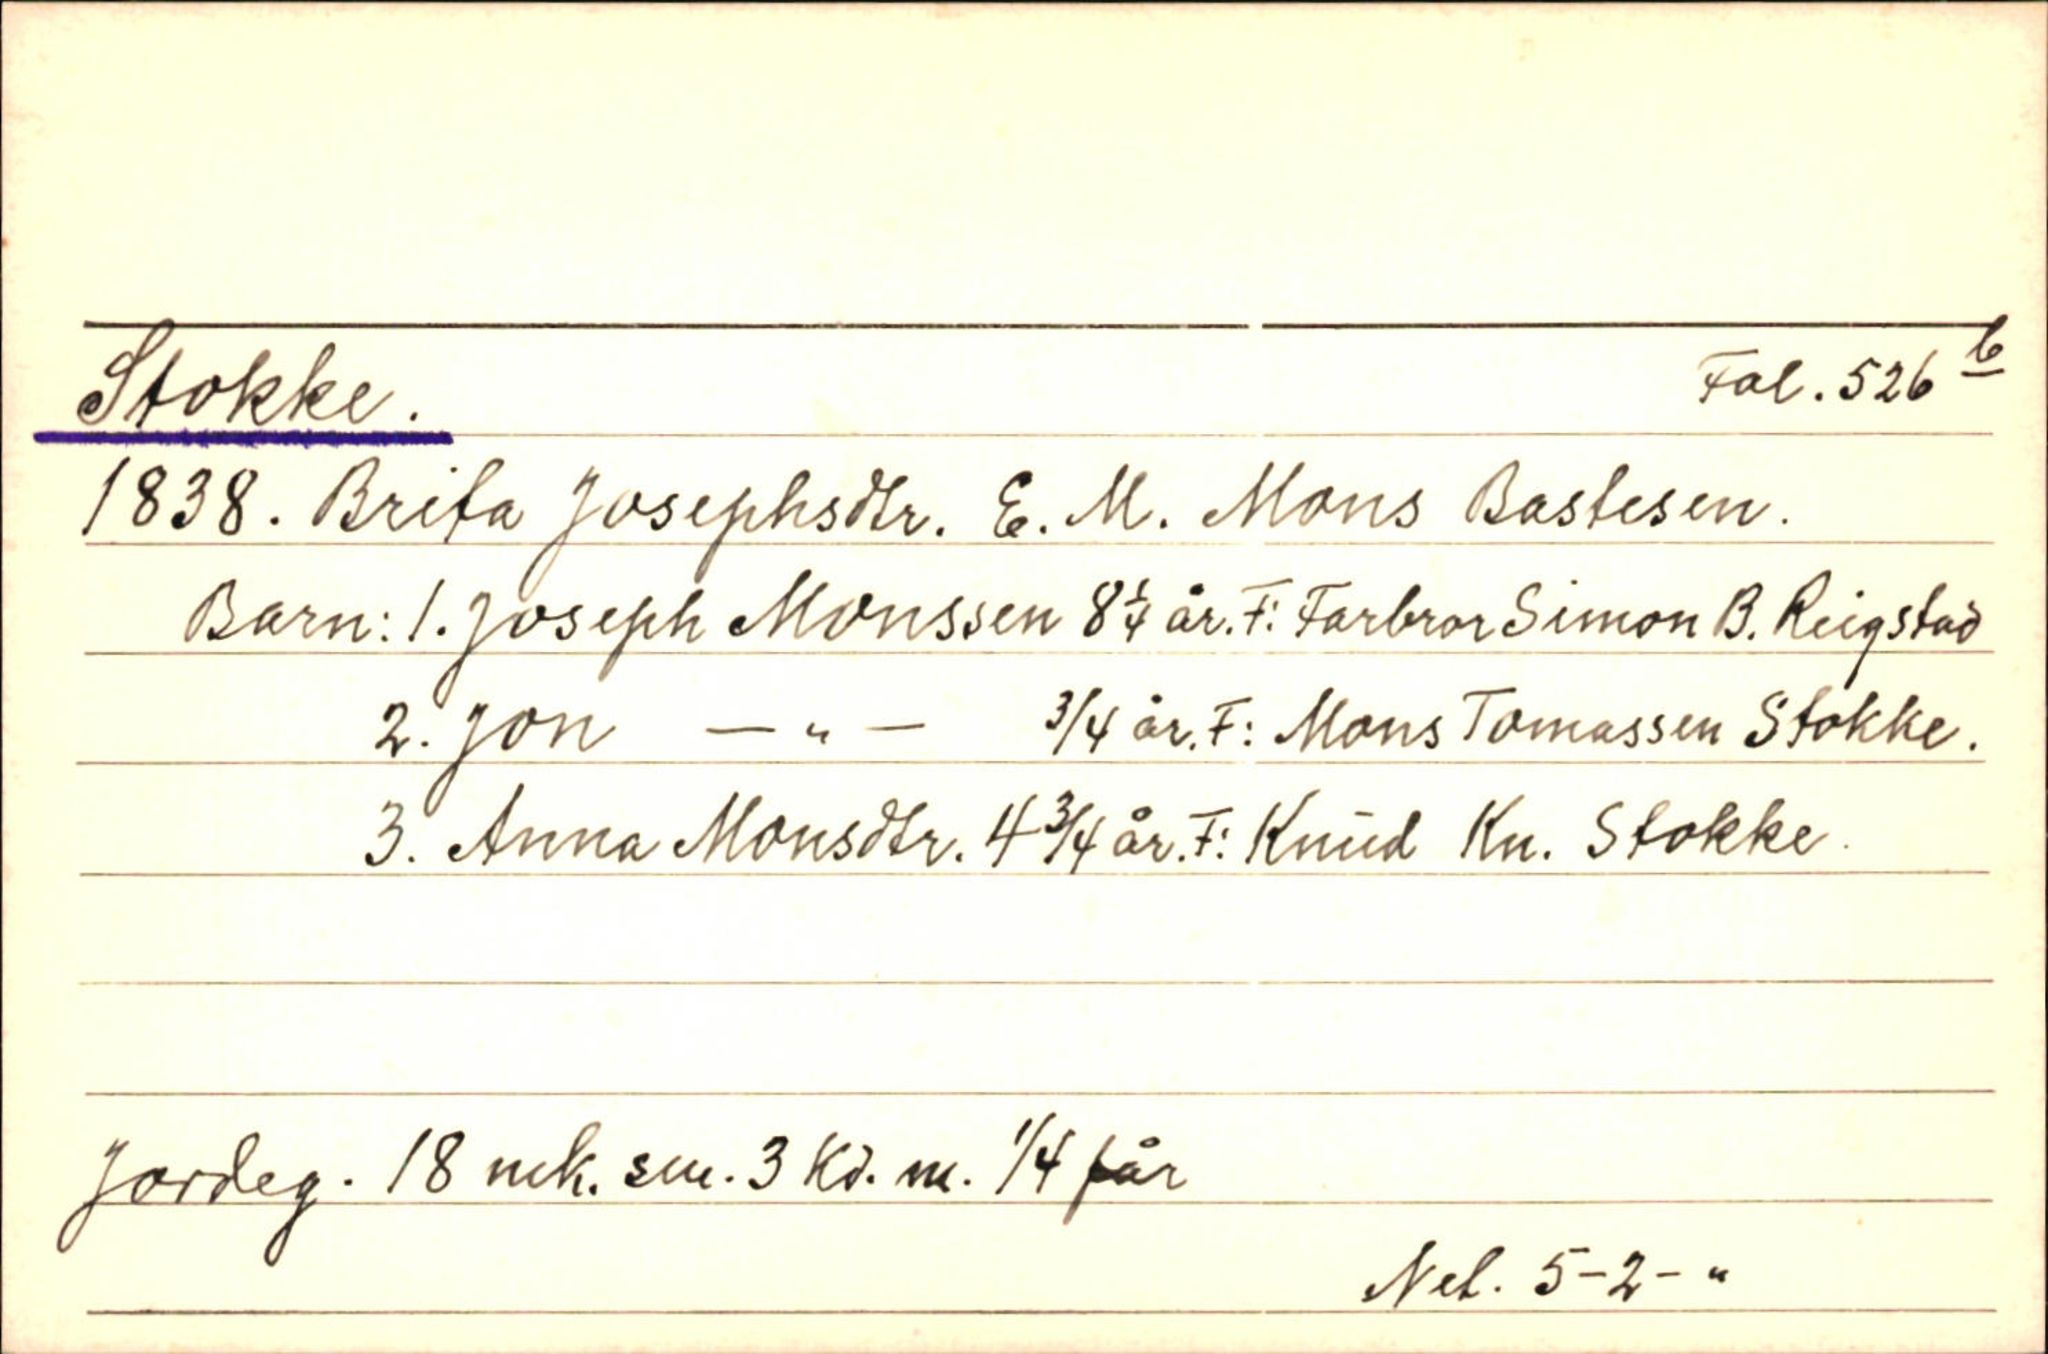 Stokke. Fol. 526 b
1838. Brita Josephsdtr. E. M. Mons Bastesen.
Barn: 1. Joseph Monssen 8 1/4 år. F: Farbror Simon B. Reigstad
2. Jon — " — 3/4 år. F: Mons Tomassen Stokke.
3. Anna Monsdtr. 4 3/4 år. F: Knud Kn. Stokke.
Jordeg. 18 mk. sm. 3 Kd. m. 1/4 får
Net. 5-2-"